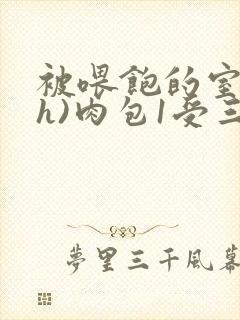 被喂飽的室
h)肉包1受三
夢里三千風幕